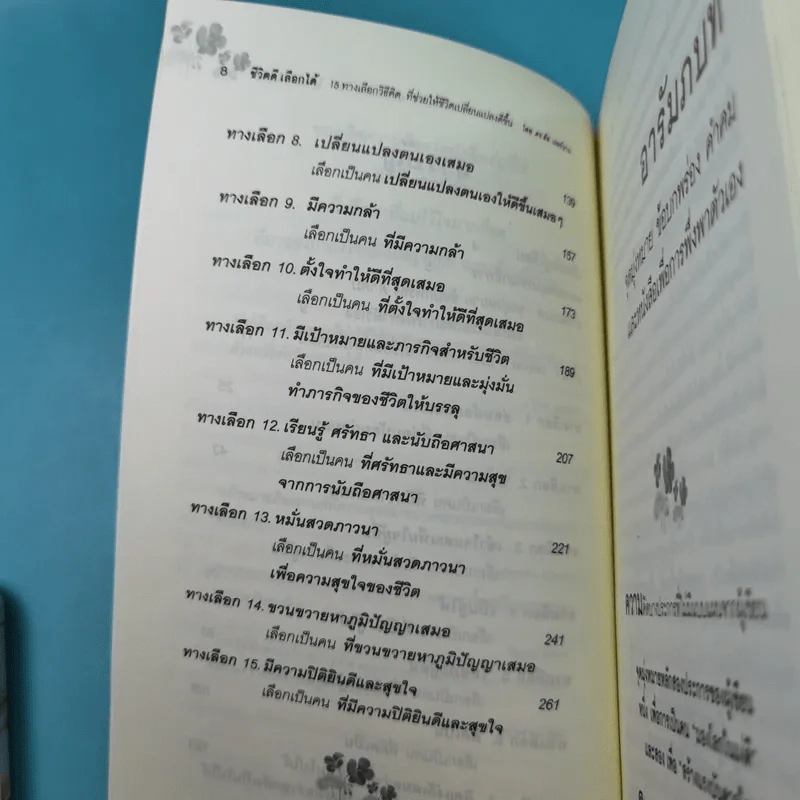 8 ชีวิตดี เลือกได้ 15 ทางเลือกวิธีคิด ที่ช่วยให้ชีวิตเปลี่ยนแปลงดีขึ้น โดย
ทางเลือก 8. เปลี่ยนแปลงตนเองเสมอ
เลือกเป็นคน เปลี่ยนแปลงตนเองให้ดีขึ้นเสมอๆ 139
ทางเลือก 9. มีความกล้า
เลือกเป็นคน ที่มีความกล้า 157
ทางเลือก 10. ตั้งใจทำให้ดีที่สุดเสมอ
เลือกเป็นคน ที่ตั้งใจทำให้ดีที่สุดเสมอ 173
ทางเลือก 11. มีเป้าหมายและภารกิจสำหรับชีวิต
เลือกเป็นคน ที่มีเป้าหมายและมุ่งมั่น 189
ทำภารกิจของชีวิตให้บรรลุ
ทางเลือก 12. เรียนรู้ ศรัทธา และนับถือศาสนา
เลือกเป็นคน ที่ศรัทธาและมีความสุข 207
จากการนับถือศาสนา
ทางเลือก 13. หมั่นสวดภาวนา
เลือกเป็นคน ที่หมั่นสวดภาวนา 221
เพื่อความสุขใจของชีวิต
ทางเลือก 14. ขวนขวายหาภูมิปัญญาเสมอ
เลือกเป็นคน ที่ขวนขวายหาภูมิปัญญาเสมอ 241
ทางเลือก 15. มีความปิติยินดีและสุขใจ
เลือกเป็นคน ที่มีความปิติยินดีและสุขใจ 261
อารัมภบท
จุดมุ่งหมาย ข้อบกพร่อง คำคม
และหนังสือเพื่อการพึ่งพาตัวเอง
จุดมุ่งหมายหลักสองประการของผู้เขียน
หนึ่ง เพื่อการเป็นคน "มองโลกในแง่ดี"
และสอง เพื่อ